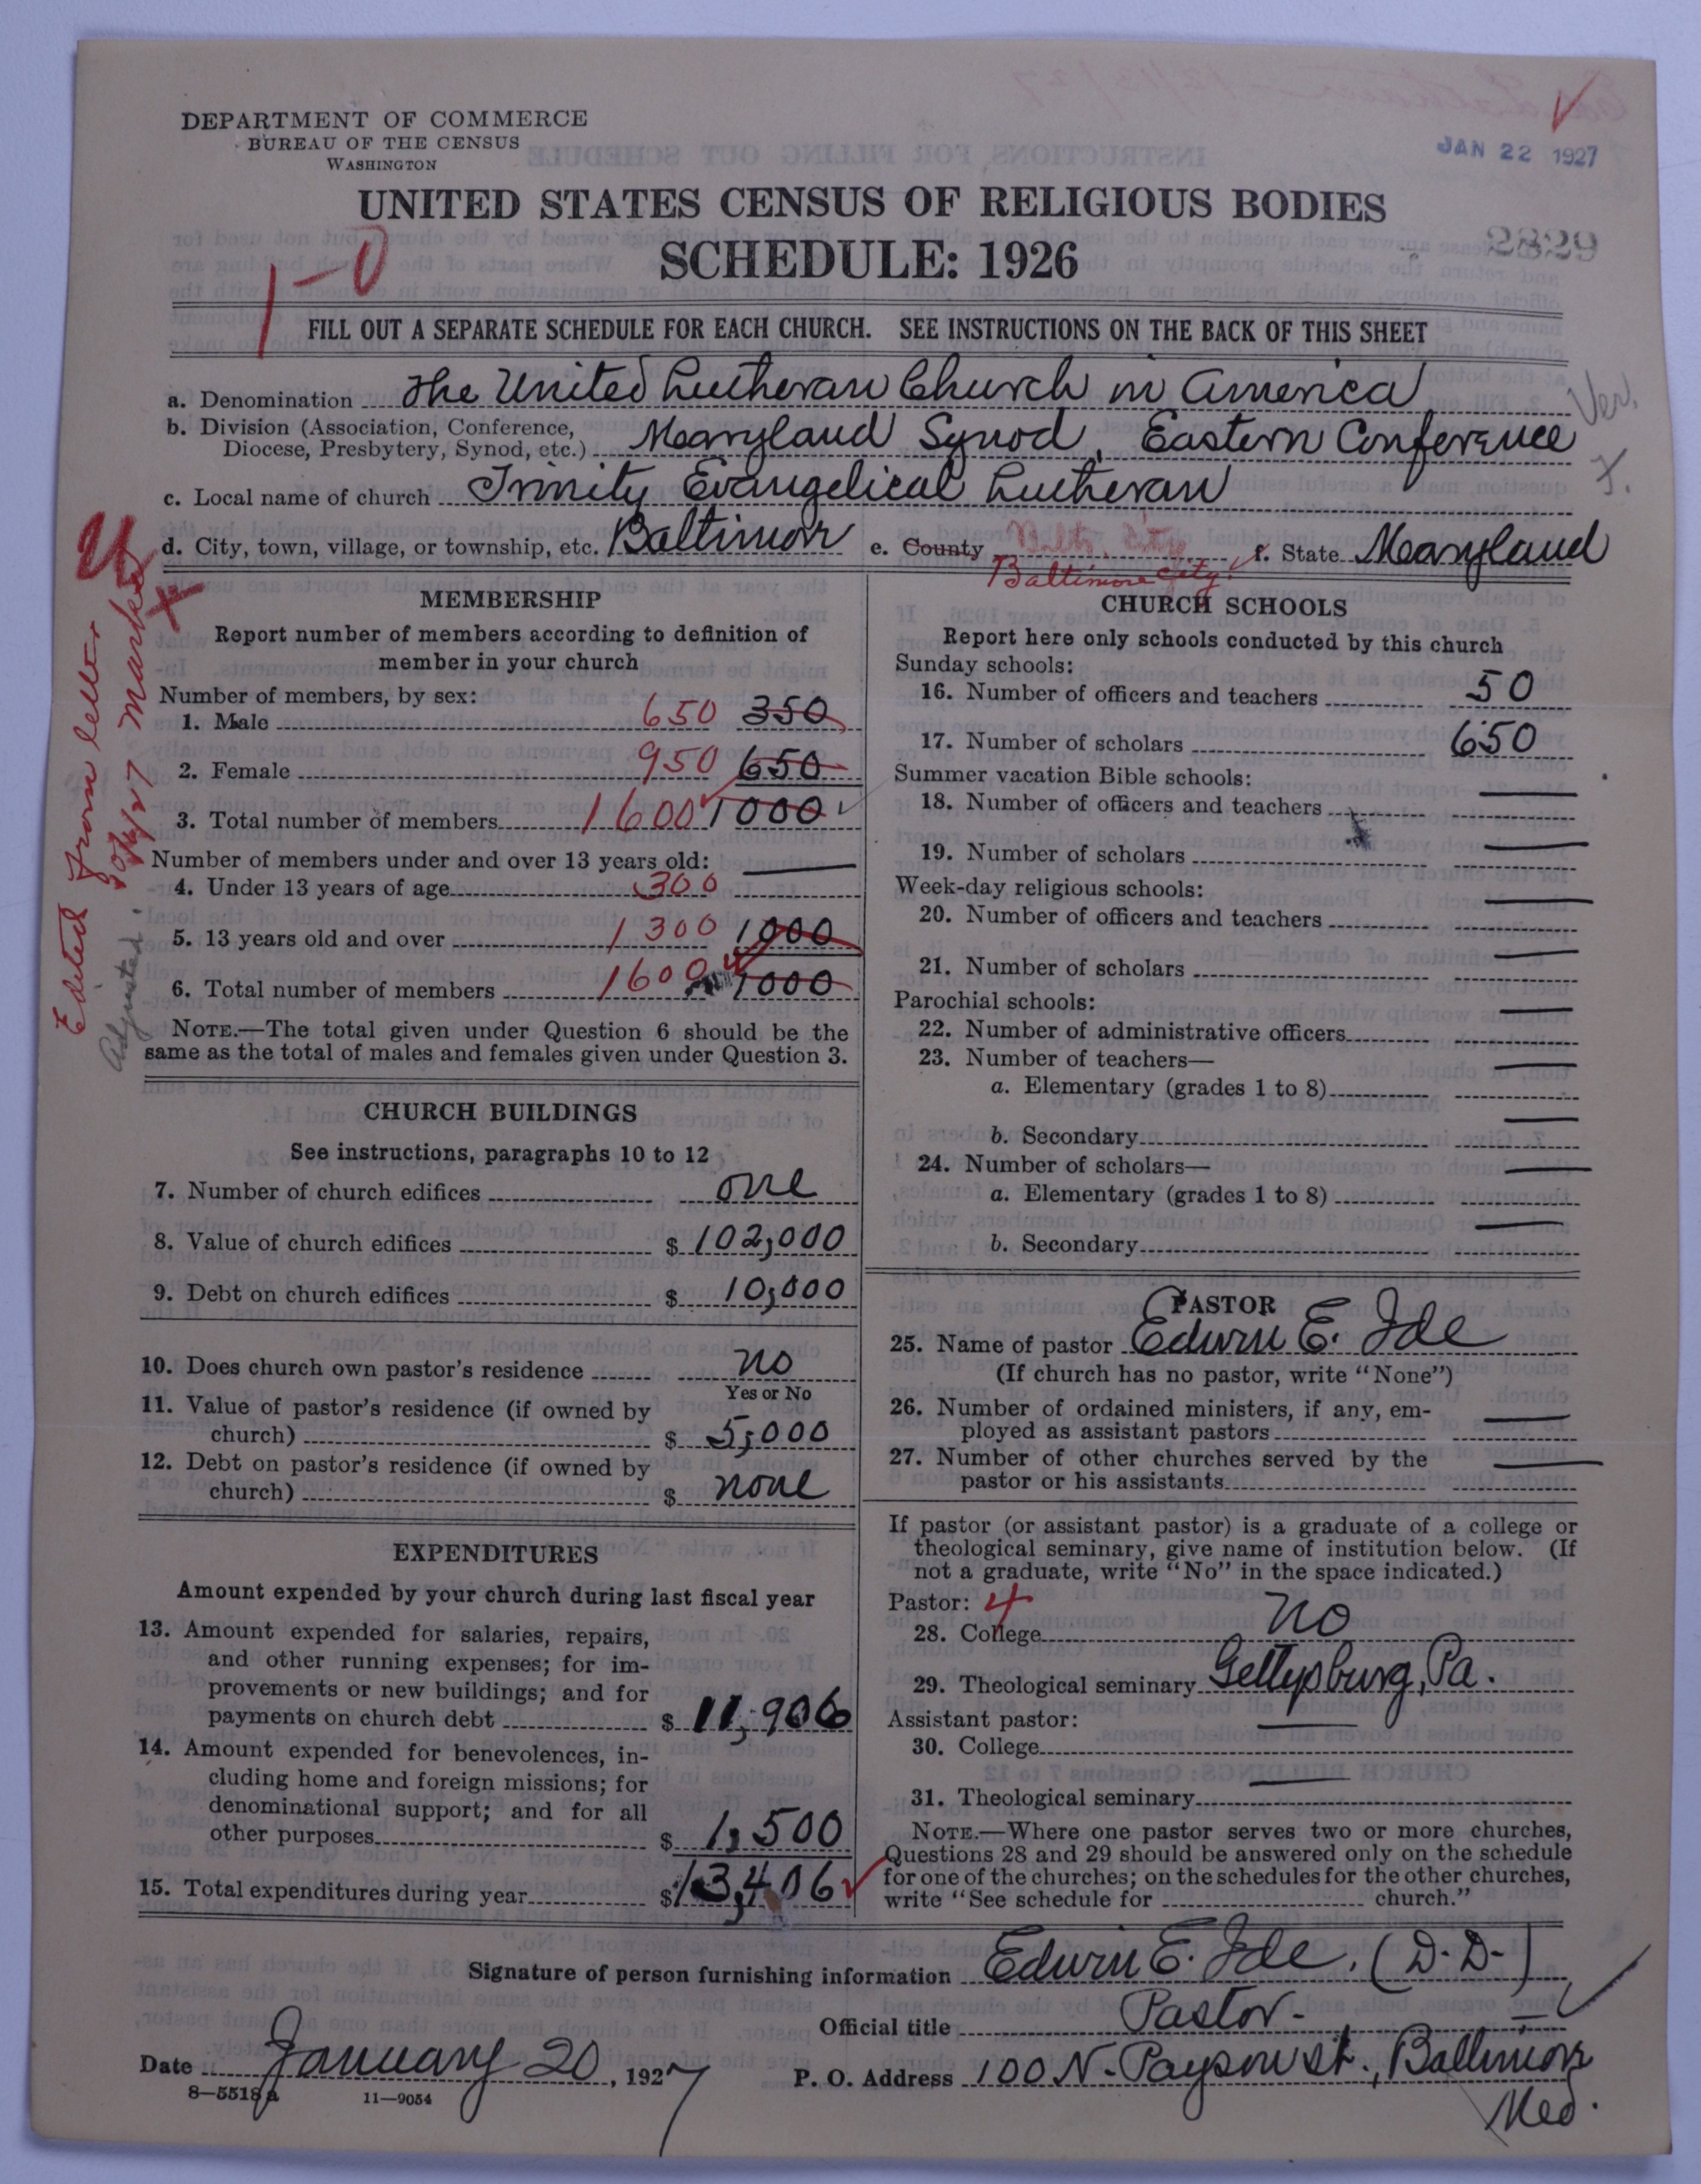 DEPARTMENT OF COMMERCE
BUREAU OF THE CENSUS
WASHINGTON
JAN 22 1927
UNITED STATES CENSUS OF RELIGIOUS BODIES
SCHEDULE: 1926
2829
1-0
FILL OUT A SEPARATE SCHEDULE FOR EACH CHURCH. SEE INSTRUCTIONS ON THE BACK OF THIS SHEET
a. Denomination The United Lutheran Church in America
Ver.
b. Division (Association, Conference, Diocese, Presbytery, Synod, etc.) Maryland Synod, Eastern Conference
c. Local name of church Trinity Evangelical Lutheran
d. City, town, village, or township, etc. Baltimore e. County Balto. City f. State Maryland
Baltimore City
Edited from letter
Marked
Adjusted.
MEMBERSHIP
Report number of members according to definition of
member in your church
Number of members, by sex:
1. Male 650 350
2. Female 950 650
3. Total number of members 1600 1000
Number of members under and over 13 years old:
4. Under 13 years of age 300
5. 13 years old and over 1300 1000
6. Total number of members 1600 1000
NOTE.—The total given under Question 6 should be the
same as the total of males and females given under Question 3.
CHURCH BUILDINGS
See instructions, paragraphs 10 to 12
7. Number of church edifices one
8. Value of church edifices $ 102,000
9. Debt on church edifices $ 10,000
10. Does church own pastor's residence no
Yes or No
11. Value of pastor's residence (if owned by
church) $ 5,000
12. Debt on pastor's residence (if owned by
church) $ none
EXPENDITURES
Amount expended by your church during last fiscal year
13. Amount expended for salaries, repairs,
and other running expenses; for im-
provements or new buildings; and for
payments on church debt $ 11,906
14. Amount expended for benevolences, in-
cluding home and foreign missions; for
denominational support; and for all
other purposes $ 1,500
15. Total expenditures during year $ 13,406
CHURCH SCHOOLS
Report here only schools conducted by this church
Sunday schools:
16. Number of officers and teachers 50
17. Number of scholars 650
Summer vacation Bible schools:
18. Number of officers and teachers
19. Number of scholars
Week-day religious schools:
20. Number of officers and teachers
21. Number of scholars
Parochial schools:
22. Number of administrative officers
23. Number of teachers—
a. Elementary (grades 1 to 8)
b. Secondary
24. Number of scholars—
a. Elementary (grades 1 to 8)
b. Secondary
PASTOR
25. Name of pastor Edwin E. Ide
(If church has no pastor, write "None")
26. Number of ordained ministers, if any, em-
ployed as assistant pastors
27. Number of other churches served by the
pastor or his assistants
If pastor (or assistant pastor) is a graduate of a college or
theological seminary, give name of institution below. (If
not a graduate, write "No" in the space indicated.)
Pastor: 4
28. College no
29. Theological seminary Gettysburg, Pa.
Assistant pastor:
30. College
31. Theological seminary
NOTE.—Where one pastor serves two or more churches,
Questions 28 and 29 should be answered only on the schedule
for one of the churches; on the schedules for the other churches,
write "See schedule for church."
Signature of person furnishing information Edwin E. Ide, (D.D.)
Official title Pastor-
Date January 20, 1927 P. O. Address 100 N. Payson St., Baltimore
Md.
8—5518a 11—9054